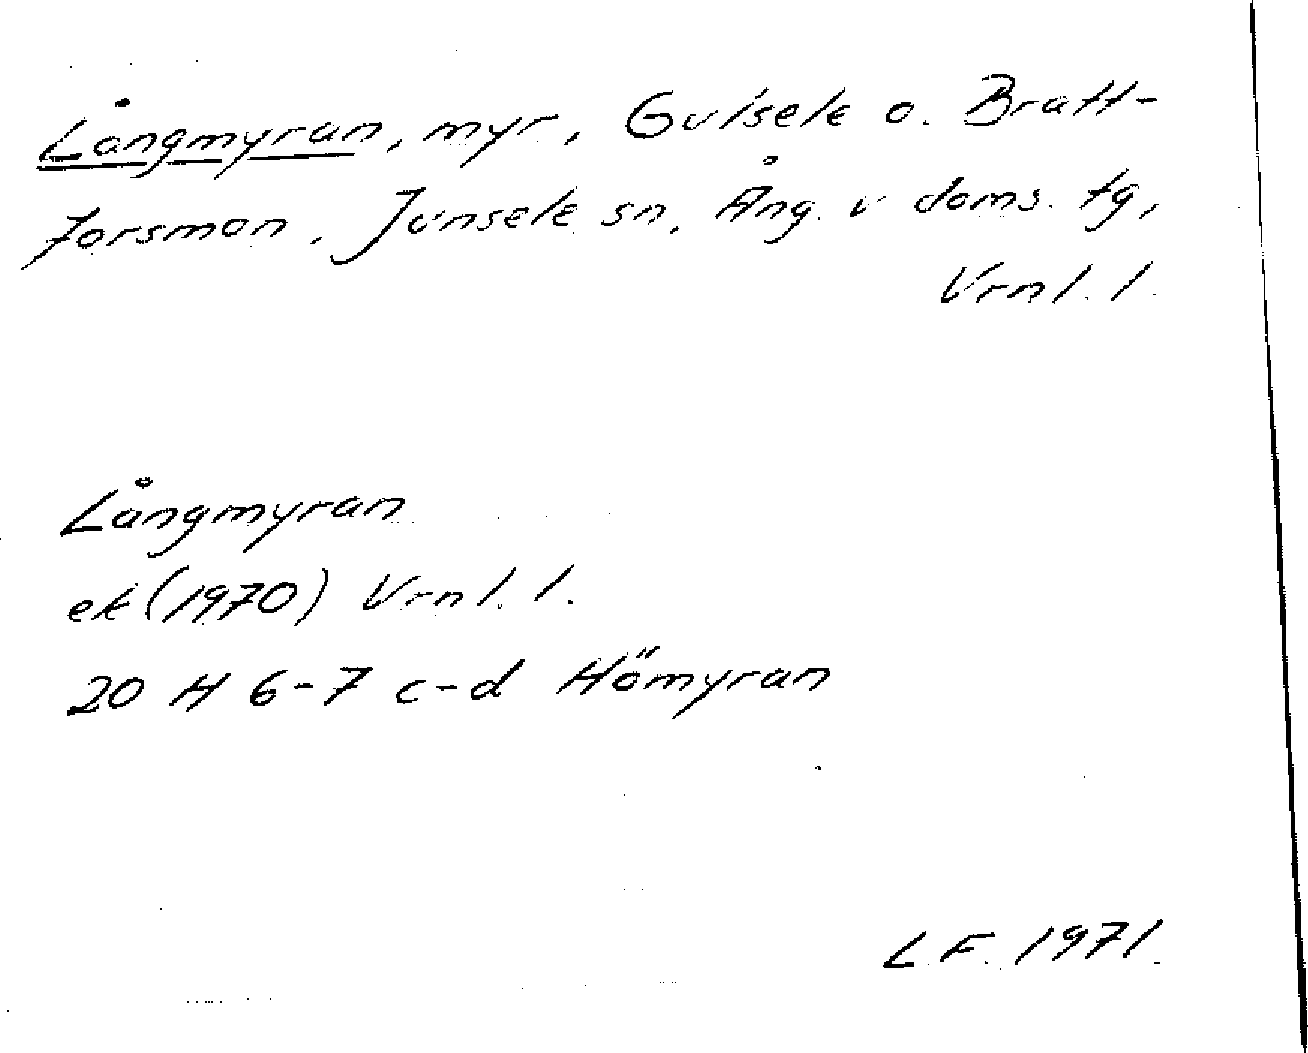 Långmyran, myr, Gulsele o. Bratt-
forsmon, Junsele sn, Ång. v doms. tg,
Vrnl. l.
Långmyran
ek (1970) Vrnl. l.
20 H 6-7 c-d Hömyran
L.F. 1971.